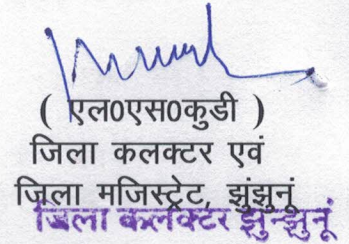 ( एल0एस0कुडी )
जिला कलक्टर एवं
जिला मजिस्ट्रेट, झुंझुनूं
जिला कलक्टर झुन्झुनूं